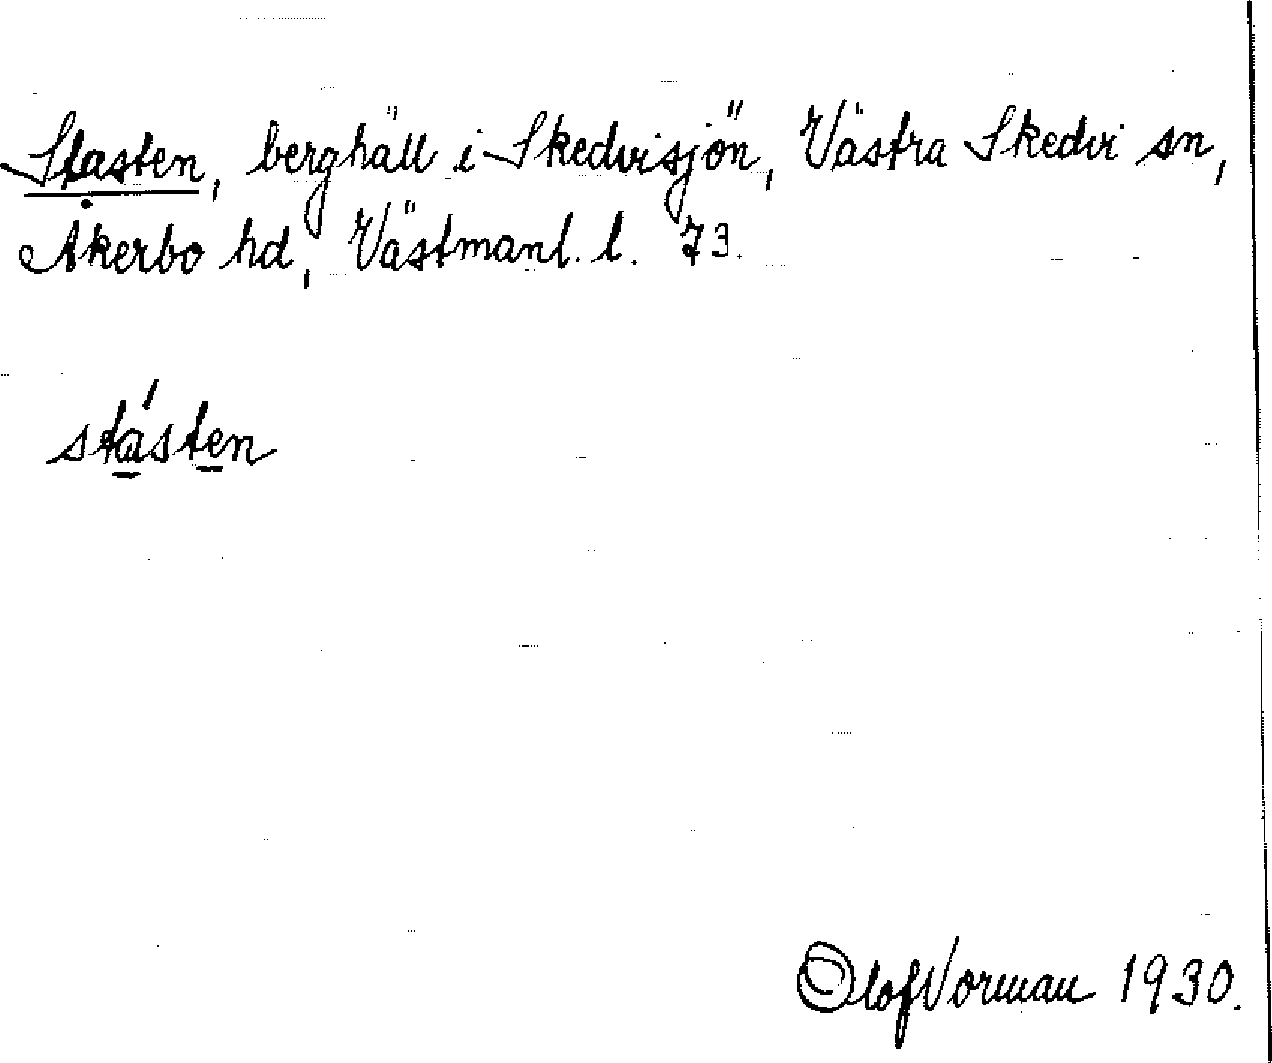 Stasten, berghäll i Skedvisjön, Västra Skedvi sn,
Åkerbo hd, Västmanl. l. 73.
stásten
Olof Norman 1930.